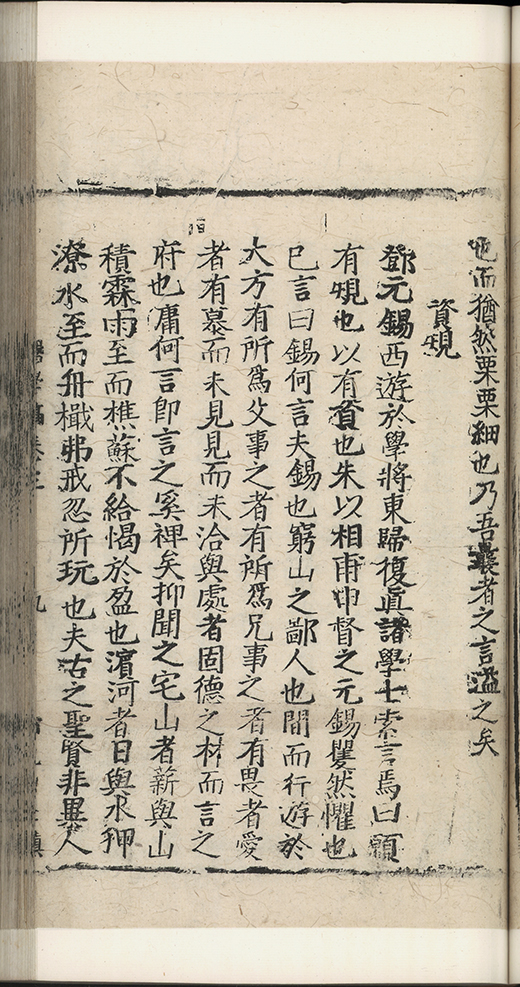 也而猶然栗栗細也乃吾曩者之言溢之矣
資規
鄧元錫西遊於學將東歸復真諸學士索言焉曰願
有規也以有資也朱以相甫申督之元錫瞿然懼也
已言曰錫何言夫錫也窮山之鄙人也間而行遊於
大方有所為父事之者有所為兄事之者有畏者愛
者有慕而未見見而未洽與處者固德之材而言之
府也庸何言即言之奚裨矣抑聞之宅山者薪與山
積霖雨至而樵蘇不給愒於盈也濵河者日與水狎
潦水至而舟檝弗戒忽所玩也夫古之聖賢非異人